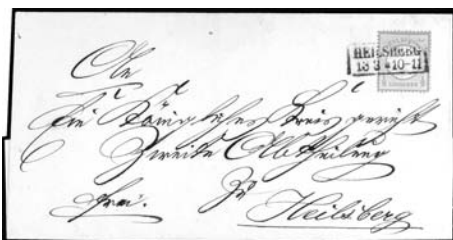 HEILSBERG
13 3 * 10-11
An
Die Königliche Kreis gericht
Zweite Abtheilung
frei.
zu
Heilsberg